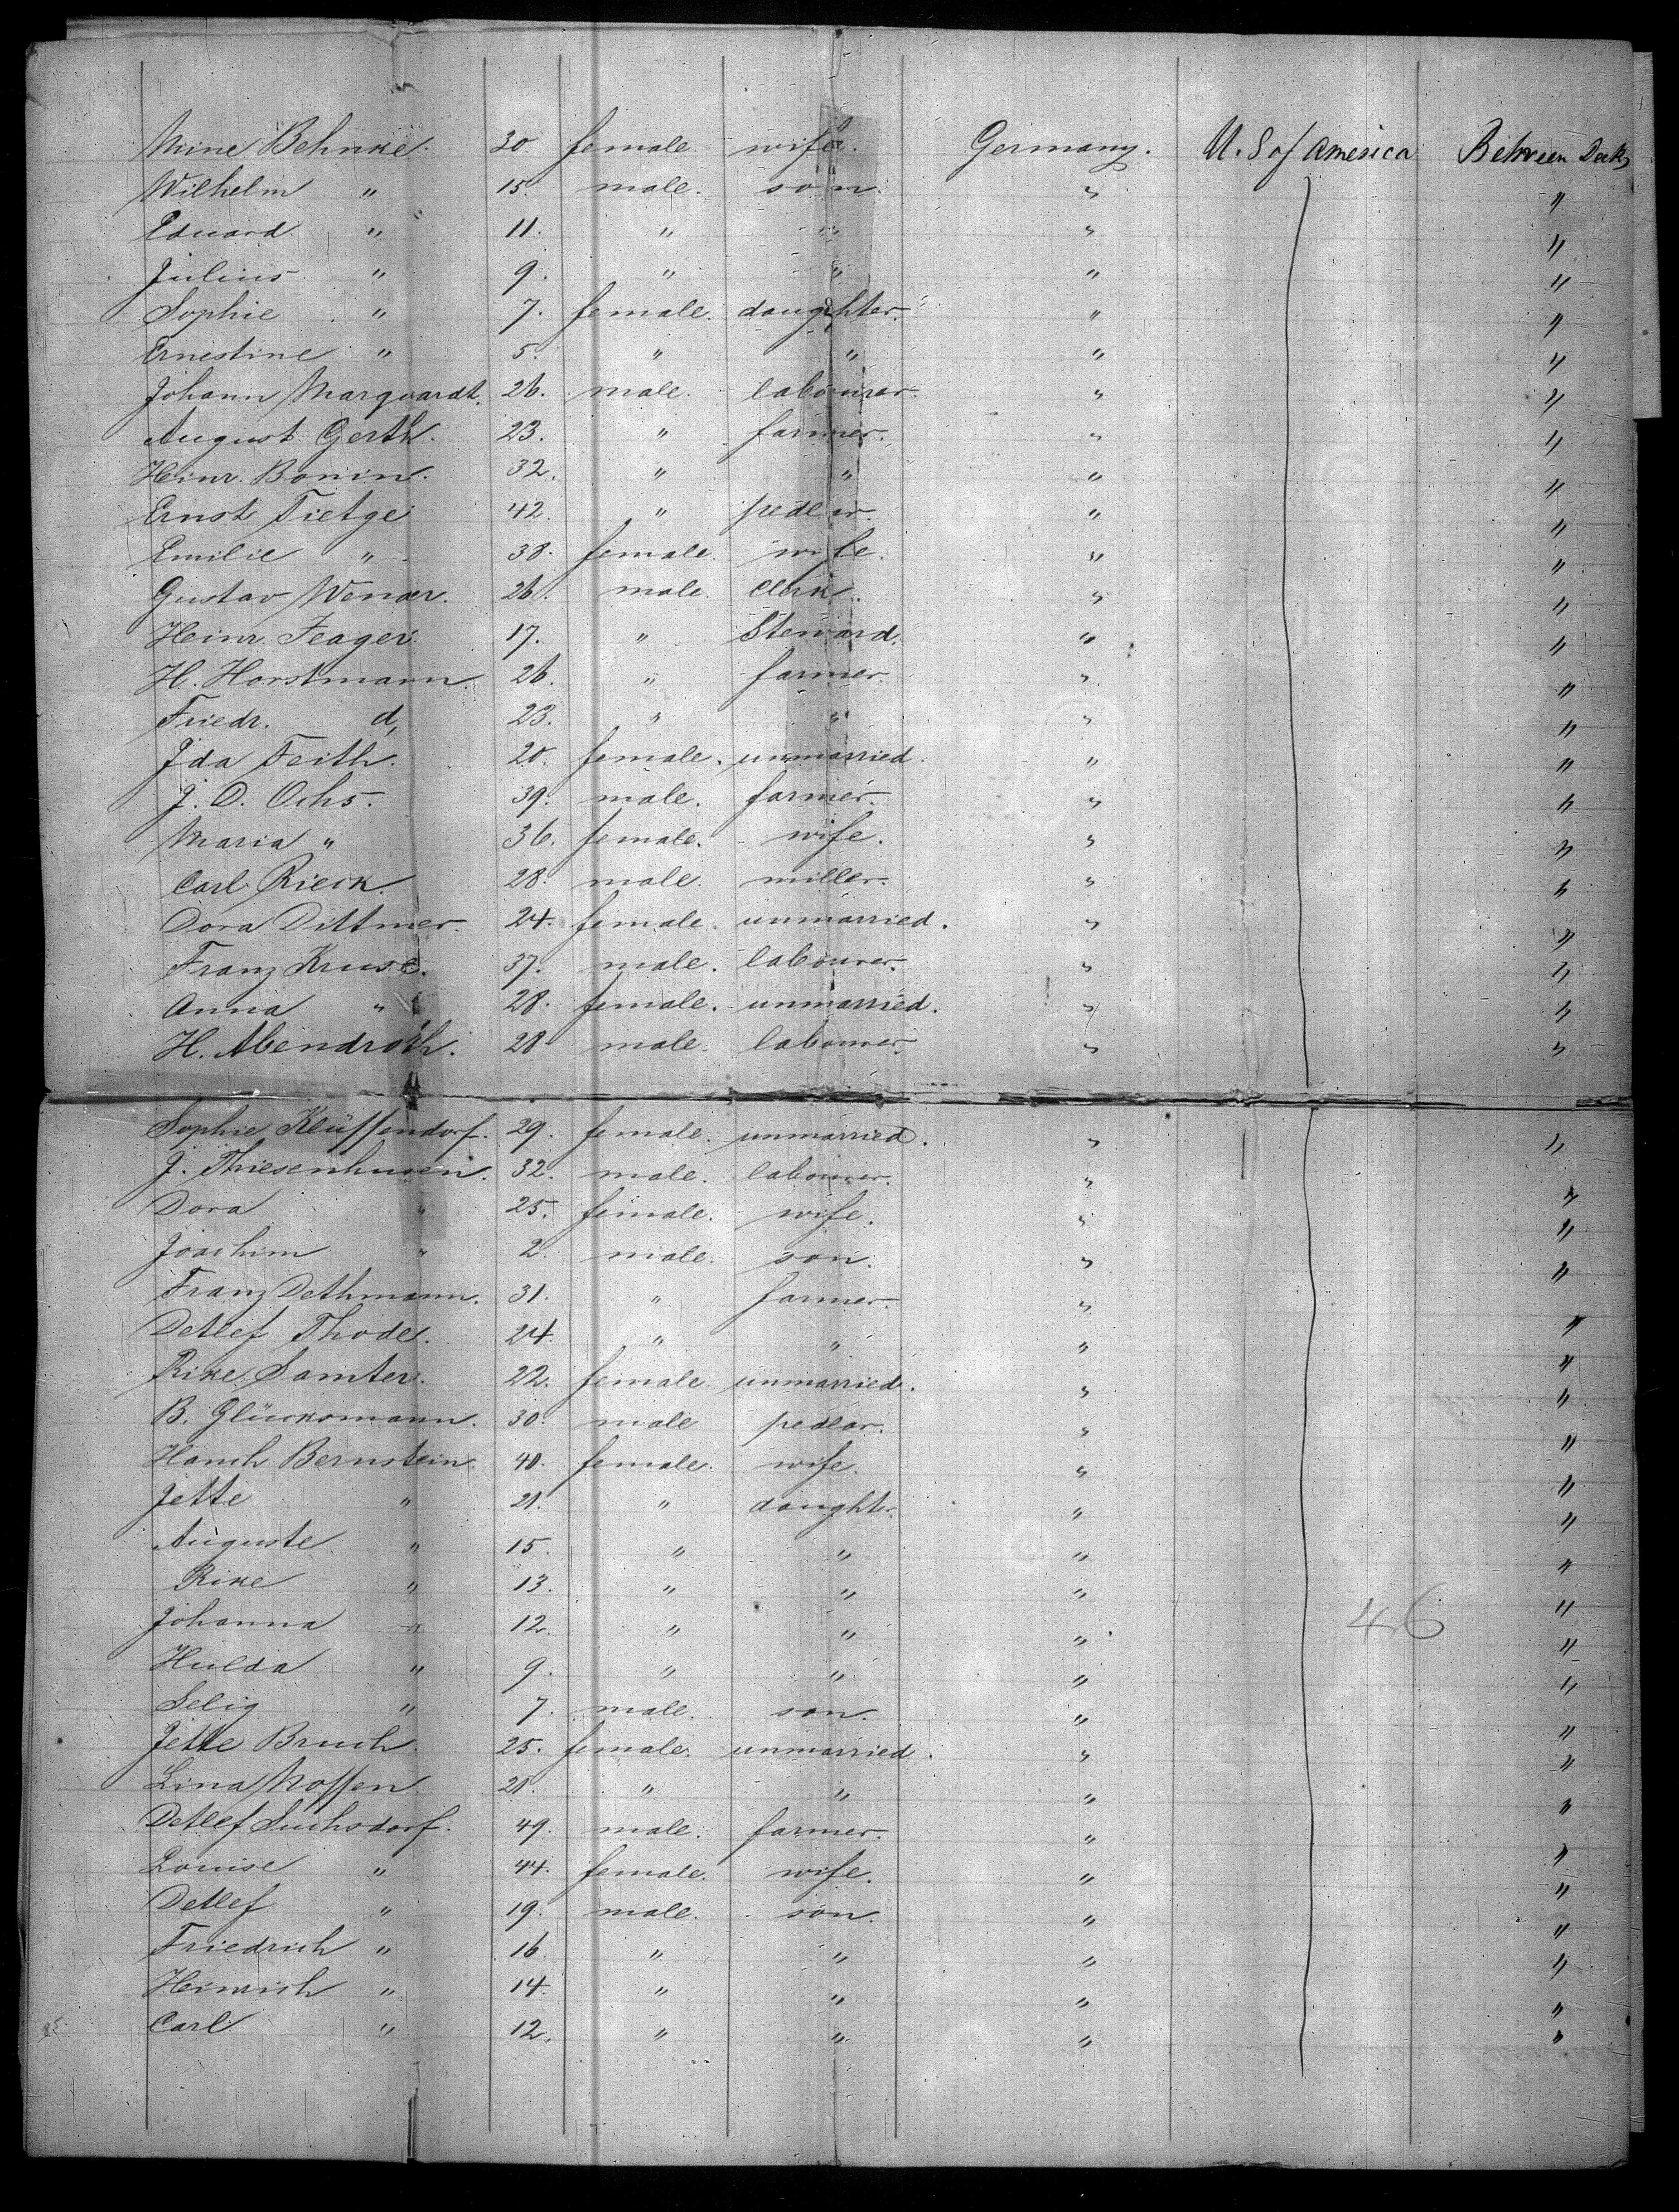 Mine Behnke. 30. female wife. Germany. U. S of America Between Decks
Wilhelm " 15. male. son. " "
Eduard " 11. " " " "
Julius " 9. " " " "
Sophie " 7. female. daughter. " "
Ernestine " 5. " " " "
Johann Marquardt. 26. male. labourer. " "
August Gerth. 23. " farmer. " "
Heinr. Bonin. 32. " " " "
Ernst Tietge 42. " pedlar. " "
Emilie " 38. female. wife. " "
Gustav 26. male. Clerk. " "
Heinr. Feager. 17. " Steward. " "
H. Horstmann. 26. " farmer " "
Friedr. d, 23. " " " "
Ida Feith. 20. female. unmarried. " "
J. D. Ochs. 39. male. farmer. " "
Maria " 36. female. wife. " "
Carl Rieck. 28. male. miller. " "
Dora Dittmer. 24. female. unmarried. " "
Franz Kruse. 37. male. labourer. " "
Anna " 28. female. unmarried. " "
H. Abendroth. 28. male. labourer. " "
Sophie Klüffendorf. 29. female. unmarried. " "
J. Thiesenhusen. 32. male. labourer. " "
Dora " 25. female. wife. " "
Joachim " 2. male. son. " "
Franz Dethmann. 31. " farmer. " "
Detlef Thode. 24. " " " "
Rike Samter. 22. female unmarried. " "
B. Glücksmann. 30. male pedlar. " "
Hanch Bernstein. 40. female. wife. " "
Jette " 21. " daughter. " "
Auguste " 15. " " " "
Rike " 13. " " " "
Johanna " 12. " " " "
46
Hulda " 9. " " " "
Selig " 7. male. son. " "
Jette Bruch. 25. female. unmarried. " "
Lina Moffen. 21. " " " "
Detlef Suchsdorf. 49. male. farmer. " "
Louise " 44. female. wife. " "
Detlef " 19. male. son. " "
Friedrich " 16 " " " "
Heinrich " 14. " " " "
Carl " 12. " " " "